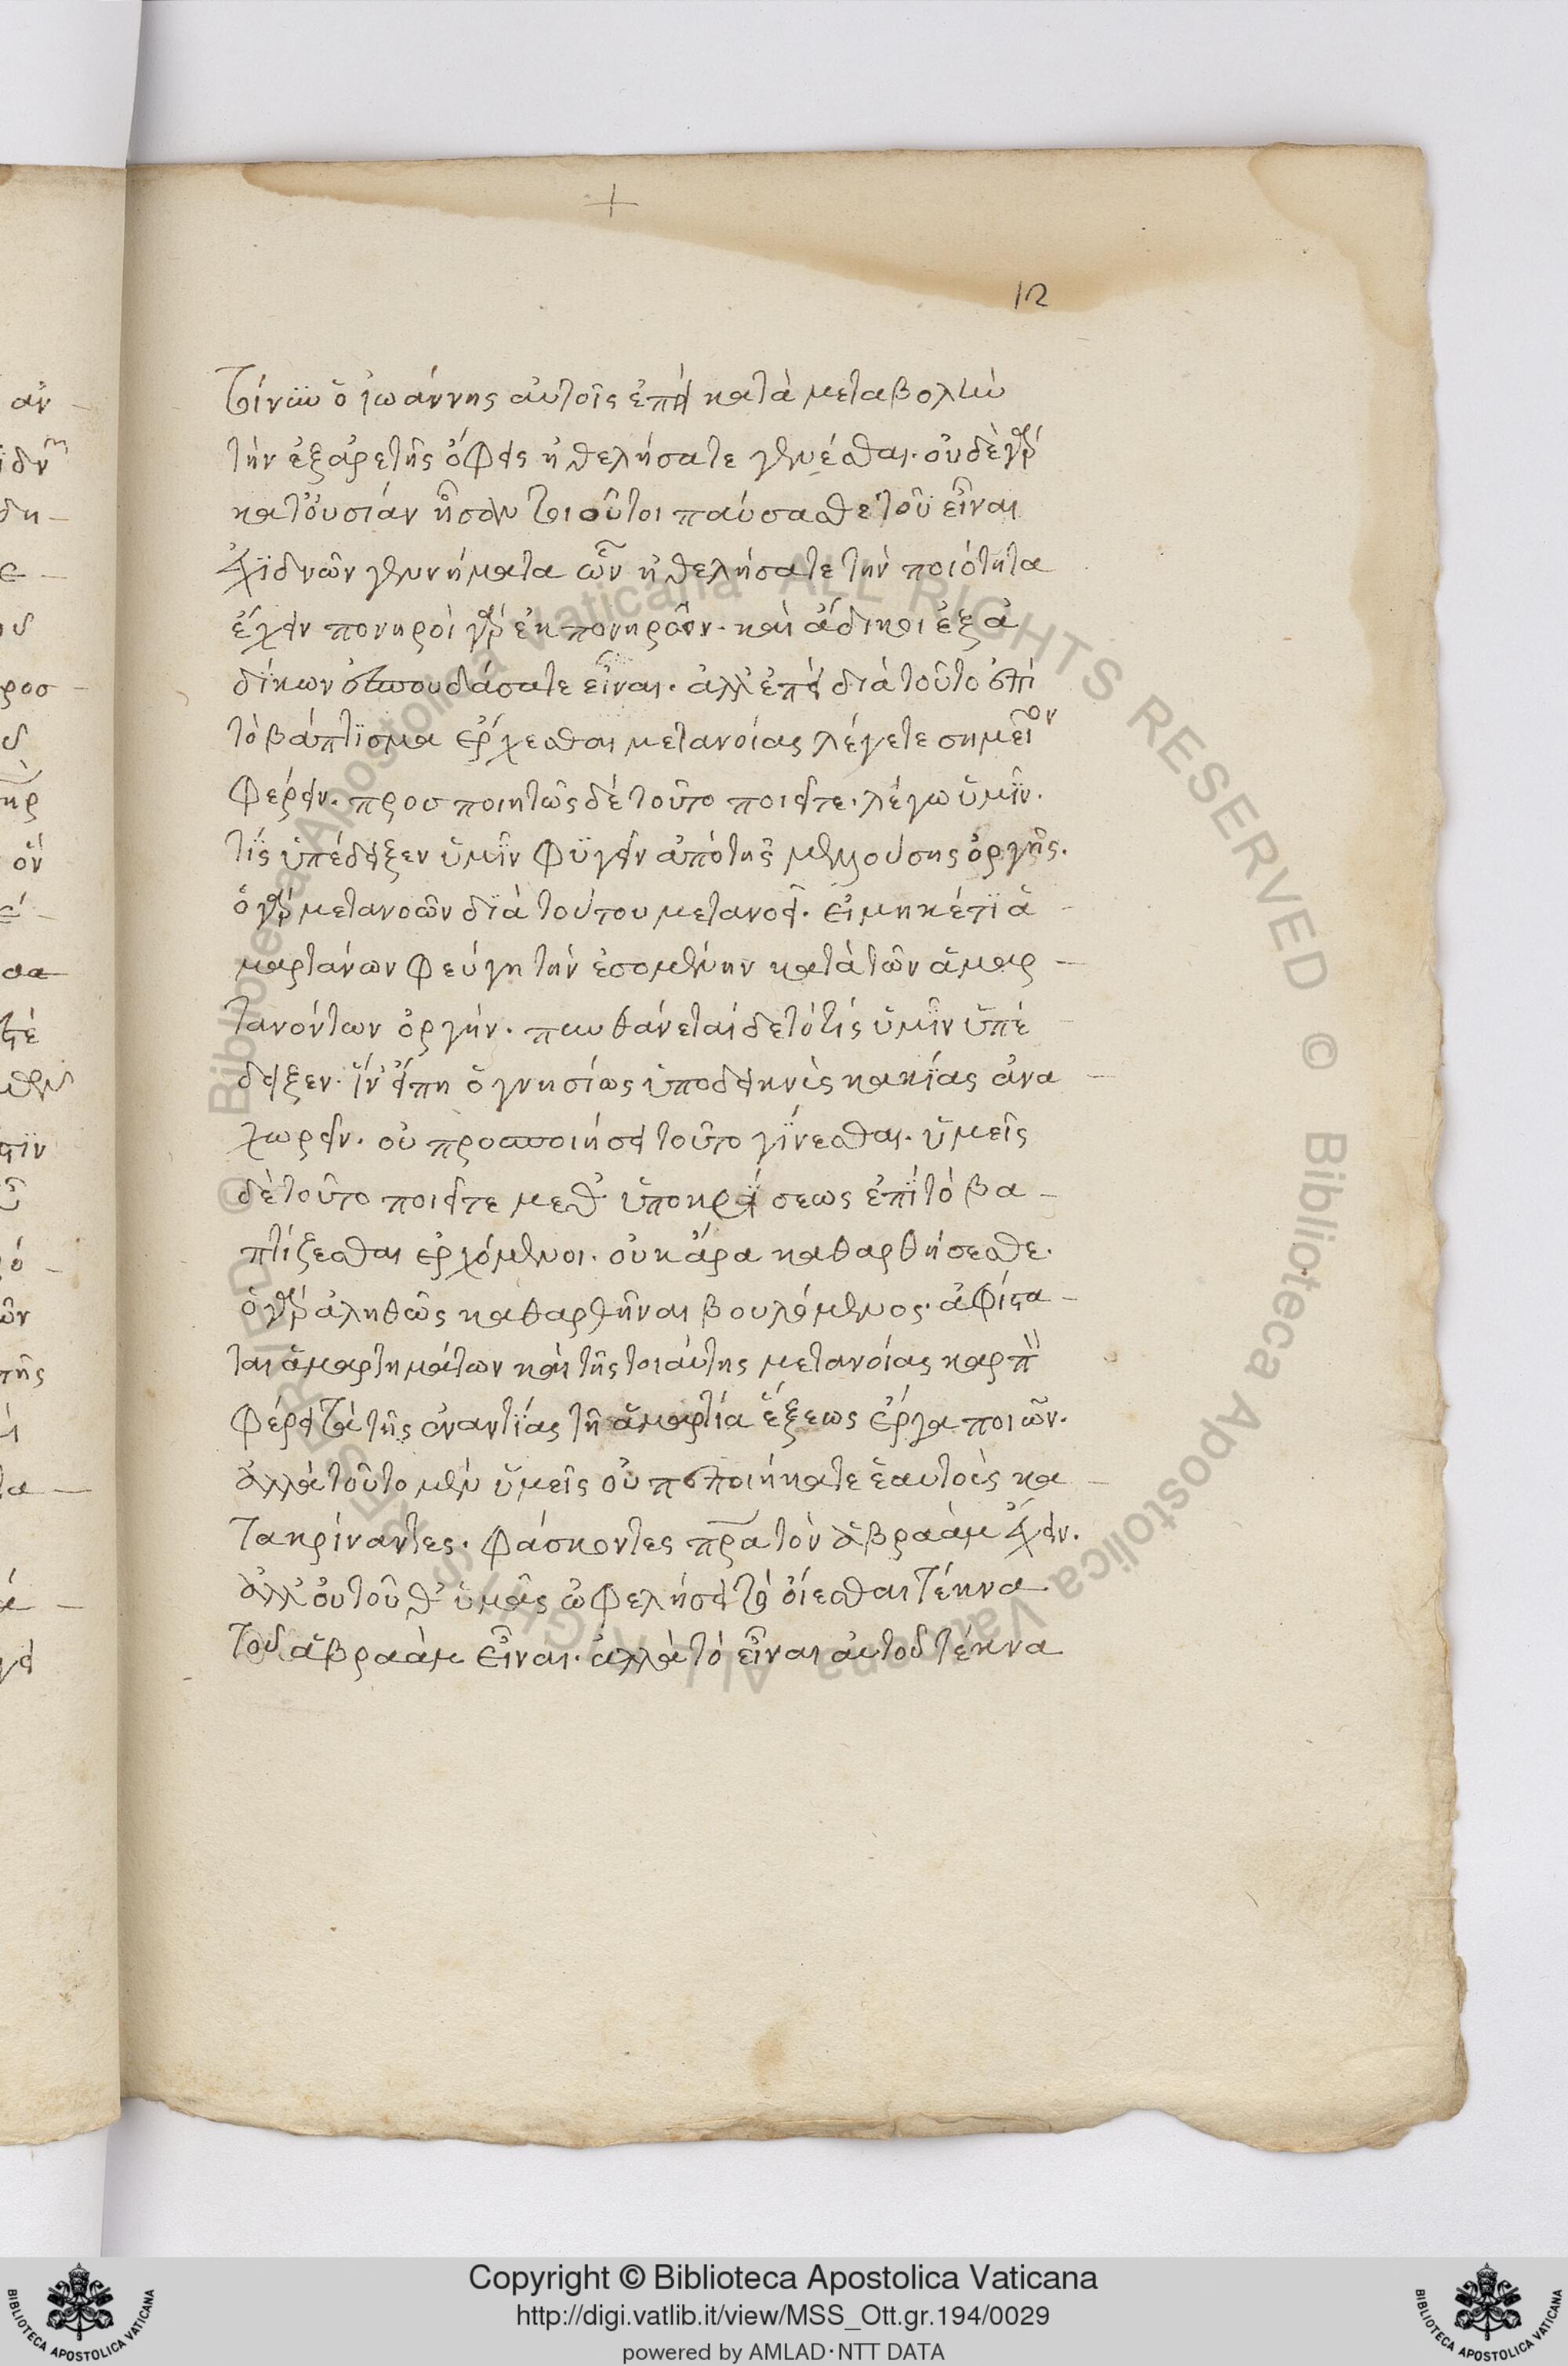 12
τίνϋν ὁ ἰωάννης αὐτοῖς ἐπεὶ κατὰ μεταβολὴν
τὴν ἐξ ἀρετῆς ὄφεις ἠθελήσατε γενέσθαι. οὐδὲ γὰρ
κατ' οὐσίαν ἦσαν τοιοῦτοι παύσασθε τοῦ εἶναι
ἐχϊδνῶν γεννήματα ὧν ἠθελήσατε τὴν ποιότητα
ἔχειν πονηροὶ γὰρ ἐκ πονηρῶν. καὶ ἄδικοι ἐξ ἀ
δίκων ἐσπουδάσατε εἶναι. ἀλλ' ἐπεὶ διὰ τοῦτο ἐπὶ
τὸ βάπτϊσμα ἔρχεσθαι μετανοίας λέγετε σημεῖον
φέρειν. προσποιητῶς δὲ τοῦτο ποιεῖτε. λέγω ὑμῖν.
τίς ὑπέδειξεν ὑμῖν φϋγεῖν ἀπὸ τῆς μελλούσης ὀργῆς.
ὁ γὰρ μετανοῶν δϊὰ τούτου μετανοεῖ. εἰ μηκέτϊ ἁ
μαρτάνων φεύγη τὴν ἐσομένην κατὰ τῶν ἁμαρ –
τανόντων ὀργήν. πυνθάνεται δὲ τὸ τίς ὑμῖν ὑπέ –
δειξεν. ἵν' εἴπη ὁ γνησίως ὑποδεικνὺς κακίας ἀνα –
χωρεῖν. οὐ προσποιήσει τοῦτο γίνεσθαι. ὑμεῖς
δὲ τοῦτο ποιεῖτε μεθ' ὑποκρίσεως ἐπὶ τὸ βα –
πτίζεσθαι ἐρχόμενοι. οὐκ ἄρα καθαρθήσεσθε.
ὁ γὰρ ἀληθῶς καθαρθῆναι βουλόμενος. ἀφίστα –
ται ἁμαρτημάτων καὶ τῆς τοιαύτης μετανοίας καρπὸν
φέρει τὰ τῆς ἐναντίας τῆ ἁμαρτία ἕξεως ἔργα ποιῶν.
ἀλλὰ τοῦτο μὲν ὑμεῖς οὐ πεποιήκατε ἑαυτοὺς κα –
τακρίναντες. φάσκοντες πρα τὸν ἀβραὰμ ἔχειν.
ἀλλ' οὐ τοῦθ' ὑμᾶς ὠφελήσει τὸ οἴεσθαι τέκνα
τοῦ ἀβραὰμ εἶναι. ἀλλὰ τὸ εἶναι αὐτοῦ τέκνα
Copyright © Biblioteca Apostolica Vaticana
http://digi.vatlib.it/view/MSS_Ott.gr.194/0029
powered by AMLAD·NTT DATA